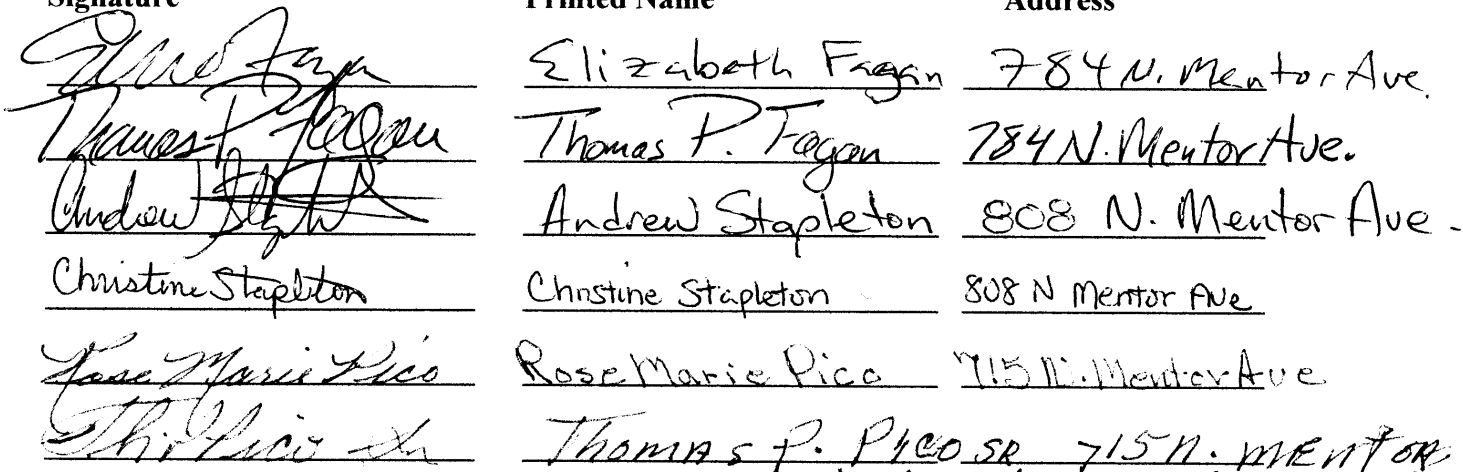 Signature Printed Name Address
Elizabeth Fagan 784 N. Mentor Ave.
Thomas P. Fagan Thomas P. Fagan 784 N. Mentor Ave.
Andrew Stapleton 808 N. Mentor Ave.
Christine Stapleton Christine Stapleton 808 N Mentor Ave
Rose Marie Pico Rose Marie Pico 715 N. Mentor Ave
Thomas P. Pico SR 715 N. Mentor